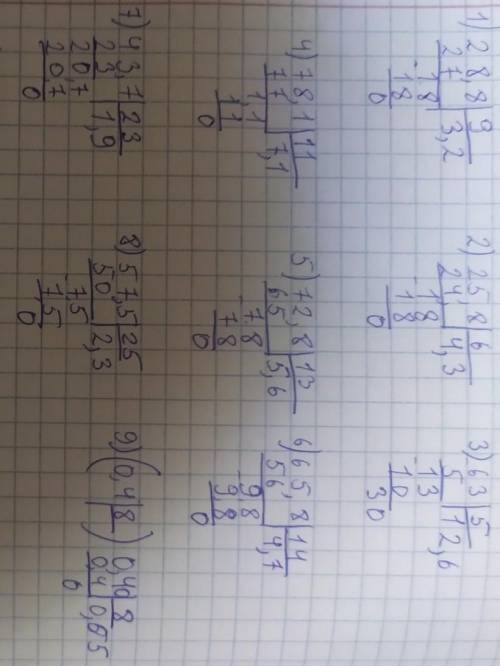 1) 288 | 9
27 | 3,2
-18
18
0
2) 258 | 6
24 | 4,3
-18
18
0
3) 63 | 5
5 | 12,6
-13
10
30
4) 78,1 | 11
77 | 7,1
1,1
1,1
0
5) 72,8 | 13
65 | 5,6
-7,8
7,8
0
6) 65,8 | 14
56 | 4,7
-9,8
9,8
0
7) 43,7 | 23
23 | 1,9
20,7
20,7
0
8) 57,5 | 25
50 | 2,3
-7,5
7,5
0
9) (0,4 | 8) 0,40 | 8
0,4
0